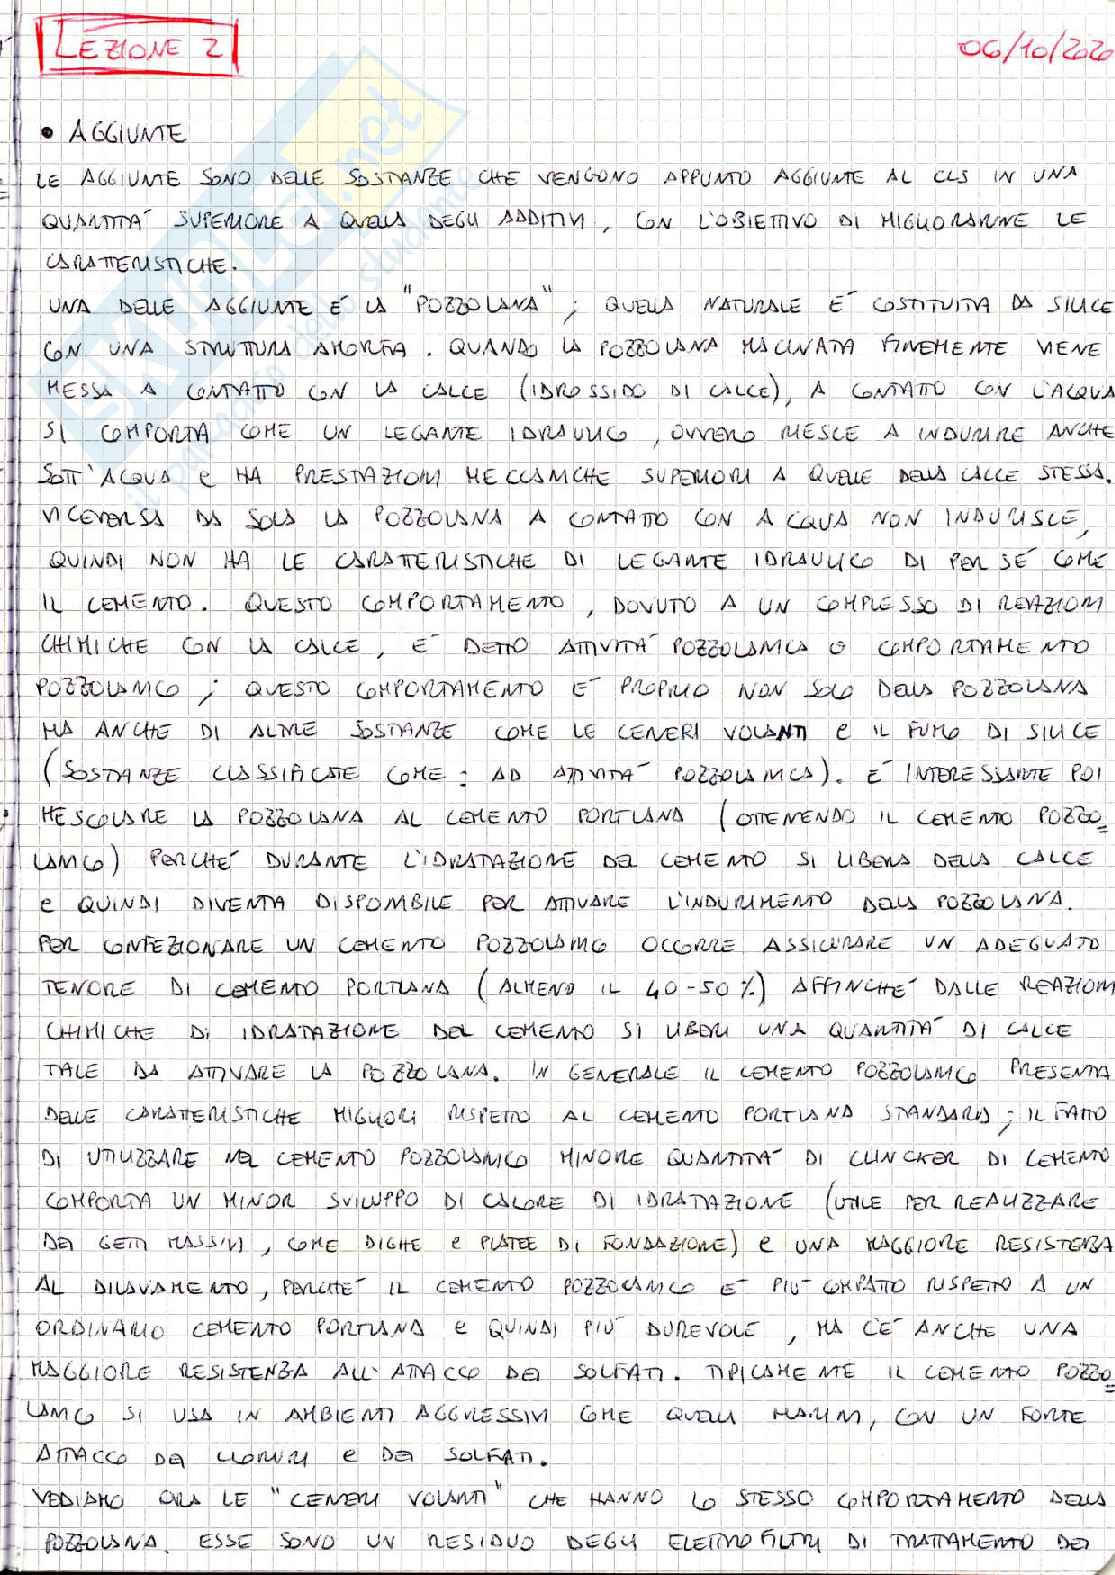 LEZIONE 2
06/10/2020
• AGGIUNTE
LE AGGIUNTE SONO DELLE SOSTANZE CHE VENGONO APPUNTO AGGIUNTE AL CLS IN UNA
QUANTITA' SUPERIORE A QUELLA DEGLI ADDITIVI, CON L'OBIETTIVO DI MIGLIORARNE LE
CARATTERISTICHE.
UNA DELLE AGGIUNTE E' LA "POZZOLANA"; QUELLA NATURALE E' COSTITUITA DA SILICE
CON UNA STRUTTURA AMORFA. QUANDO LA POZZOLANA MACINATA FINEMENTE VIENE
MESSA A CONTATTO CON LA CALCE (IDROSSIDO DI CALCE), A CONTATTO CON L'ACQUA
SI COMPORTA COME UN LEGANTE IDRAULICO, OVVERO RIESCE A INDURIRE ANCHE
SOTT'ACQUA e HA PRESTAZIONI MECCANICHE SUPERIORI A QUELLE DELLA CALCE STESSA.
VICEVERSA DA SOLA LA POZZOLANA A CONTATTO CON ACQUA NON INDURISCE,
QUINDI NON HA LE CARATTERISTICHE DI LEGANTE IDRAULICO DI PER SE' COME
IL CEMENTO. QUESTO COMPORTAMENTO, DOVUTO A UN COMPLESSO DI REAZIONI
CHIMICHE CON LA CALCE, E' DETTO ATTIVITA' POZZOLANICA O COMPORTAMENTO
POZZOLANICO; QUESTO COMPORTAMENTO E' PROPRIO NON SOLO DELLA POZZOLANA
MA ANCHE DI ALTRE SOSTANZE COME LE CENERI VOLANTI e IL FUMO DI SILICE
(SOSTANZE CLASSIFICATE COME: AD ATTIVITA' POZZOLANICA). E' INTERESSANTE POI
MESCOLARE LA POZZOLANA AL CEMENTO PORTLAND (OTTENENDO IL CEMENTO POZZO=
LANICO) PERCHE' DURANTE L'IDRATAZIONE DEL CEMENTO SI LIBERA DELLA CALCE
e QUINDI DIVENTA DISPONIBILE PER ATTIVARE L'INDURIMENTO DELLA POZZOLANA.
PER CONFEZIONARE UN CEMENTO POZZOLANICO OCCORRE ASSICURARE UN ADEGUATO
TENORE DI CEMENTO PORTLAND (ALMENO IL 40-50%) AFFINCHE' DALLE REAZIONI
CHIMICHE DI IDRATAZIONE DEL CEMENTO SI LIBERI UNA QUANTITA' DI CALCE
TALE DA ATTIVARE LA POZZOLANA. IN GENERALE IL CEMENTO POZZOLANICO PRESENTA
DELLE CARATTERISTICHE MIGLIORI RISPETTO AL CEMENTO PORTLAND STANDARD; IL FATTO
DI UTILIZZARE NEL CEMENTO POZZOLANICO MINORE QUANTITA' DI CLINCKER DI CEMENTO
COMPORTA UN MINOR SVILUPPO DI CALORE DI IDRATAZIONE (UTILE PER REALIZZARE
DEI GETTI MASSIVI, COME DIGHE e PLATEE DI FONDAZIONE) e UNA MAGGIORE RESISTENZA
AL DILAVAMENTO, PERCHE' IL CEMENTO POZZOLANICO E' PIU' COMPATTO RISPETTO A UN
ORDINARIO CEMENTO PORTLAND e QUINDI PIU' DUREVOLE, MA C'E' ANCHE UNA
MAGGIORE RESISTENZA ALL'ATTACCO DEI SOLFATI. TIPICAMENTE IL CEMENTO POZZO=
LANICO SI USA IN AMBIENTI AGGRESSIVI COME QUELLI MARINI, CON UN FORTE
ATTACCO DEI CLORURI e DEI SOLFATI.
VEDIAMO ORA LE "CENERI VOLANTI" CHE HANNO LO STESSO COMPORTAMENTO DELLA
POZZOLANA. ESSE SONO UN RESIDUO DEGLI ELETTROFILTRI DI TRATTAMENTO DEI
SKUOLA.net
il paradiso dello studente